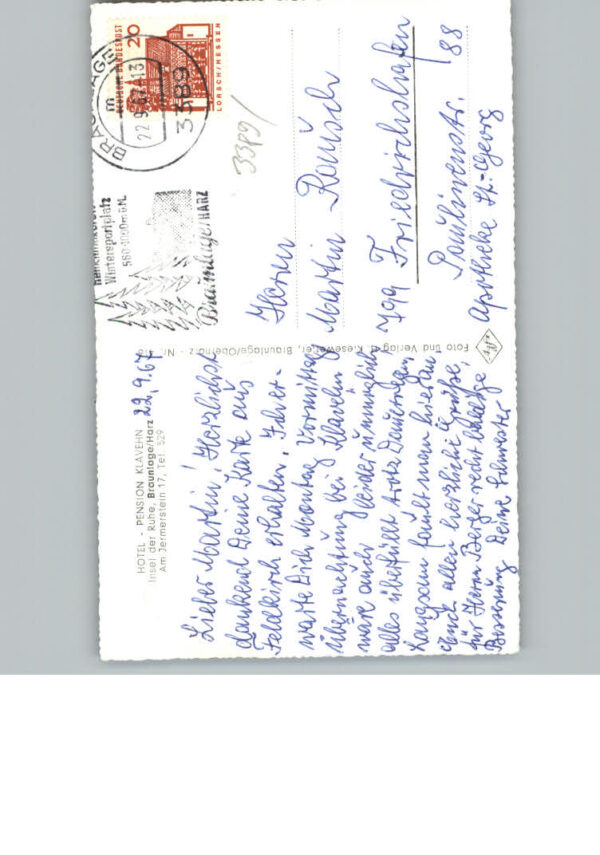 HOTEL - PENSION KLAVEHN
Insel der Ruhe, Braunlage/Harz
Am Jermerstein 17, Tel. 529
22.9.67
Lieber Martin! Herzlichst
dankend Deine Karte aus
Feldkirch erhalten. Ich er-
warte Dich Montag Vormittag
Übernachtung bei Klavehn
wäre auch leider unmöglich
alles überfüllt trotz Dauerregen.
Langsam fault man hier an
Euch allen herzliche Grüße,
für Herrn Berger recht baldige
Besserung Deine Schwester
Foto und Verlag G. Kiesewetter, Braunlage/Oberharz - Nr.
BRAUNLAGE
m
22.9.67-13
3389
DEUTSCHE BUNDESPOST
20
LORSCH/HESSEN
Wintersportplatz
560-1000m ü.M.
Braunlage/HARZ
3389/
Herrn
Martin
799 Friedrichshafen
Paulinenstr. 88
Apotheke St. Georg